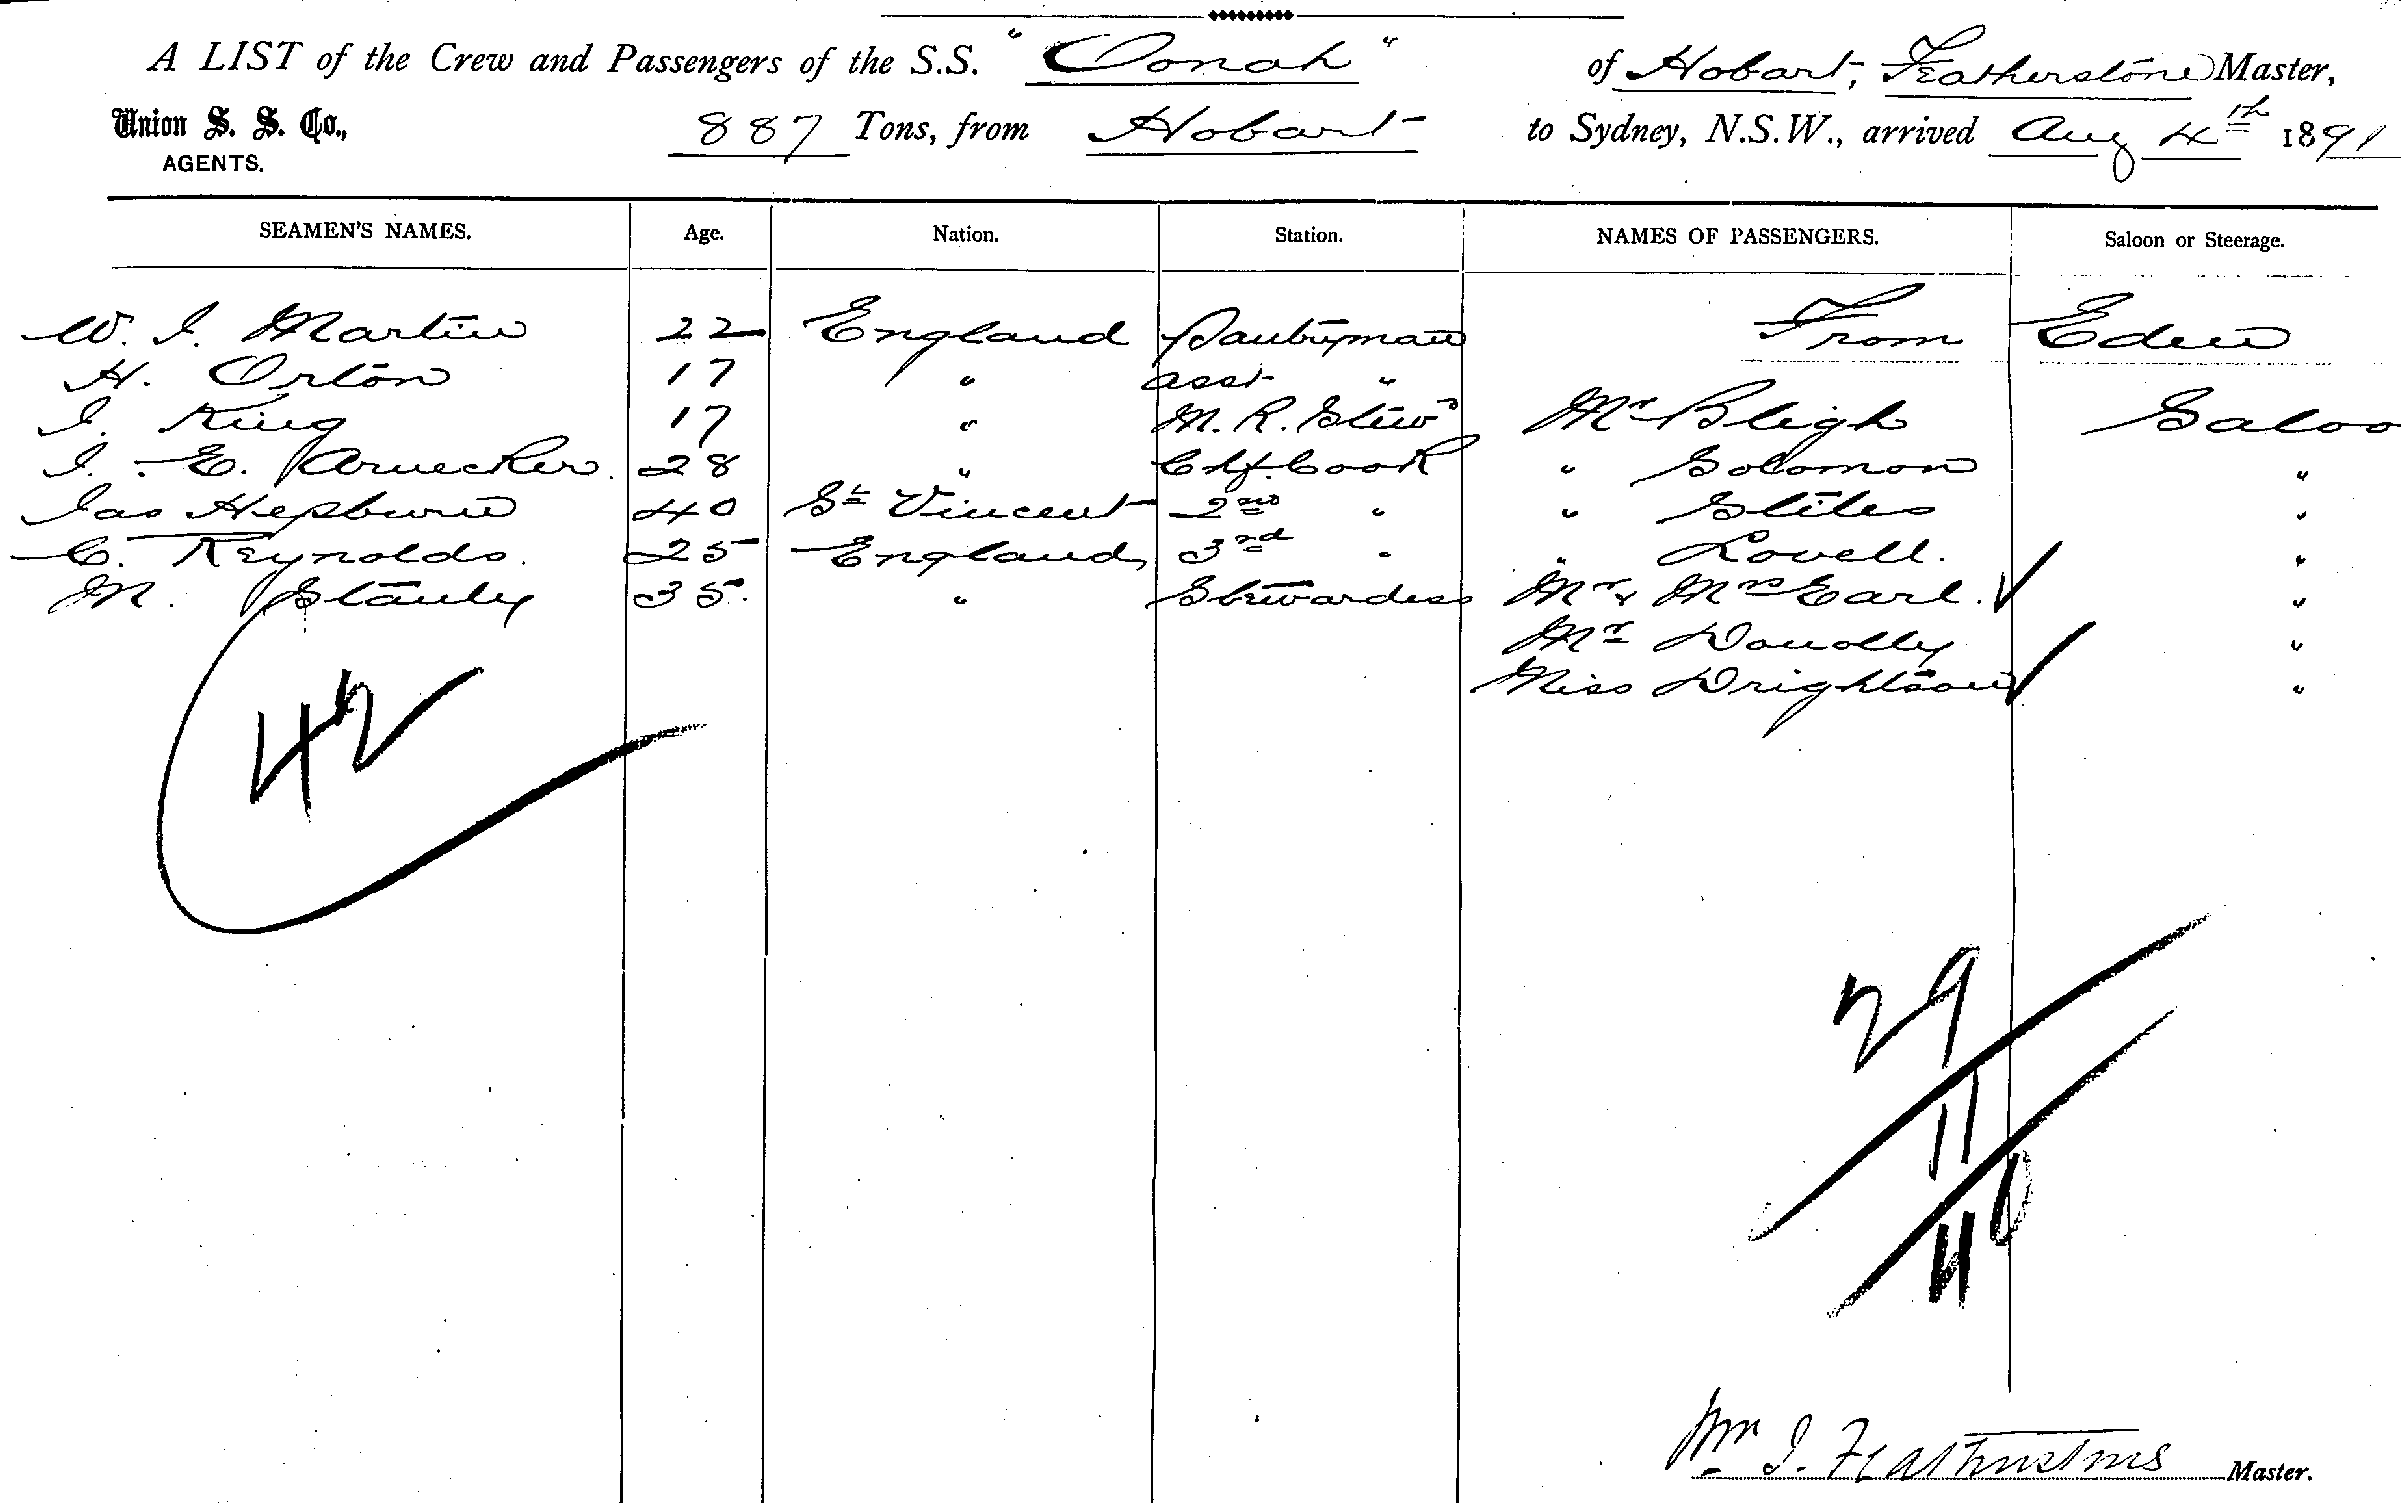 A LIST of the Crew and Passengers of the S.S. "Oonah" of Hobart, Featherstone Master,
Union S. S. Co., 887 Tons, from Hobart to Sydney, N.S.W., arrived Aug 4th 1891
AGENTS.
SEAMEN'S NAMES. Age. Nation. Station. NAMES OF PASSENGERS. Saloon or Steerage.
W. J. Martin 22 England Pantryman From Eden
H. Orton 17 " asst "
J. King 17 " M. R. Stewd Mr Bligh Saloo
J. E. 28 " Chf. Cook " Solomon "
Jas Hepburn 40 St Vincent 2nd " " Stiles "
C. Reynolds. 25 England 3rd " " Lovell. "
M. Stanley 35. " Stewardess Mr & Mrs Earl. "
Mr Donolly "
Miss "
42
29
11
40
Wm J. Featherstone Master.